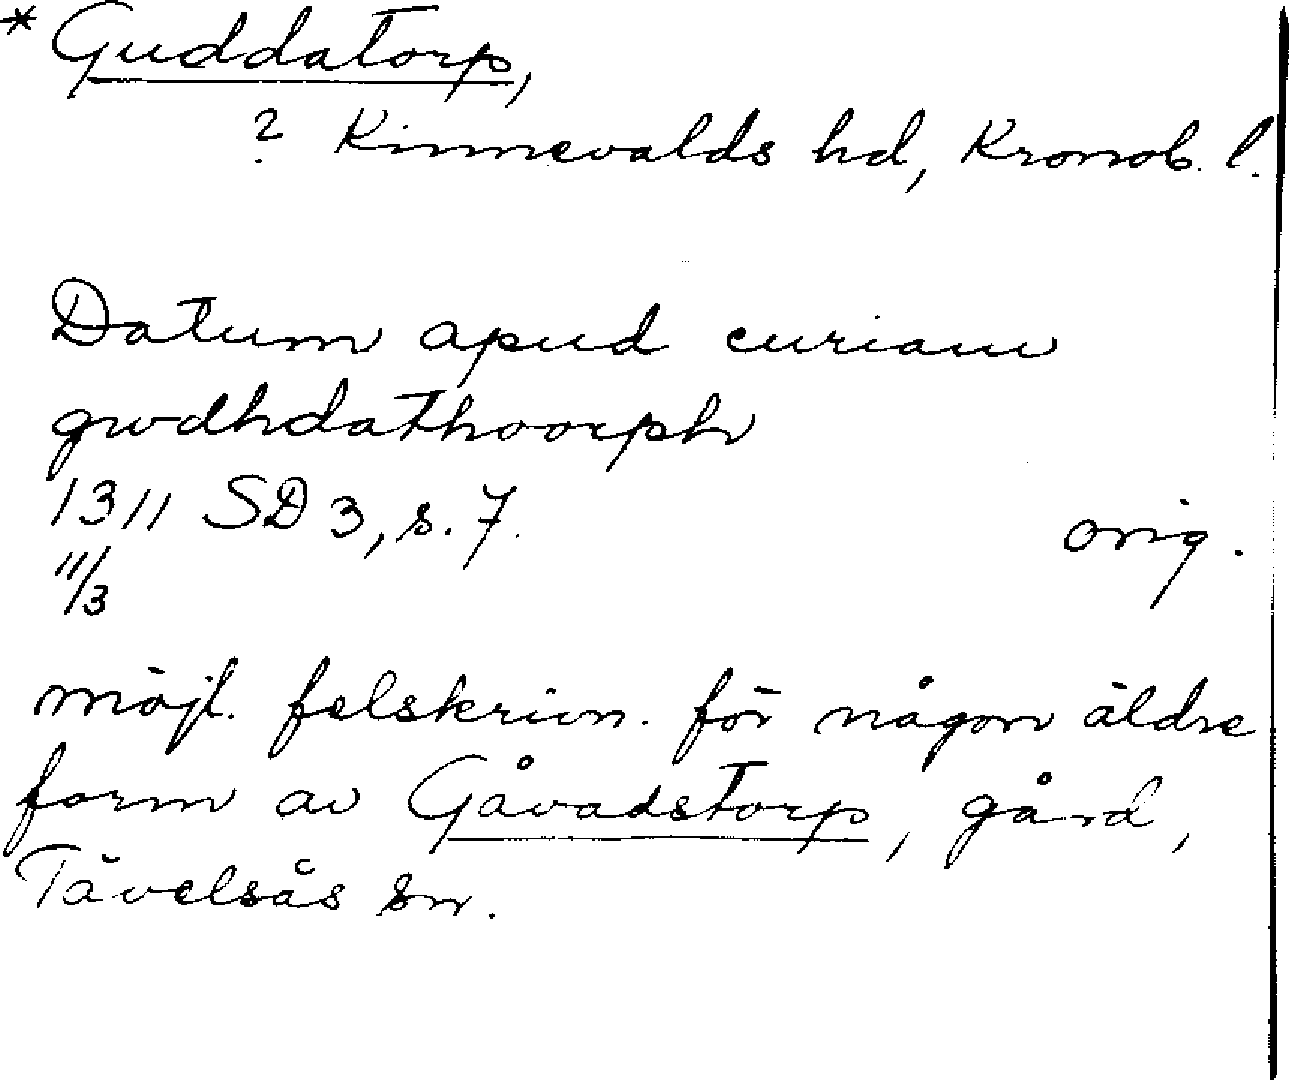 * Guddatorp,
? Kinnevalds hd, Kronob. l.
Datum apud curiam
gwdhdathoorph
1311 SD 3, s. 7.
orig.
11/3
möjl. felskrivn. för någon äldre
form av Gåvadstorp, gård,
Tävelsås sn.